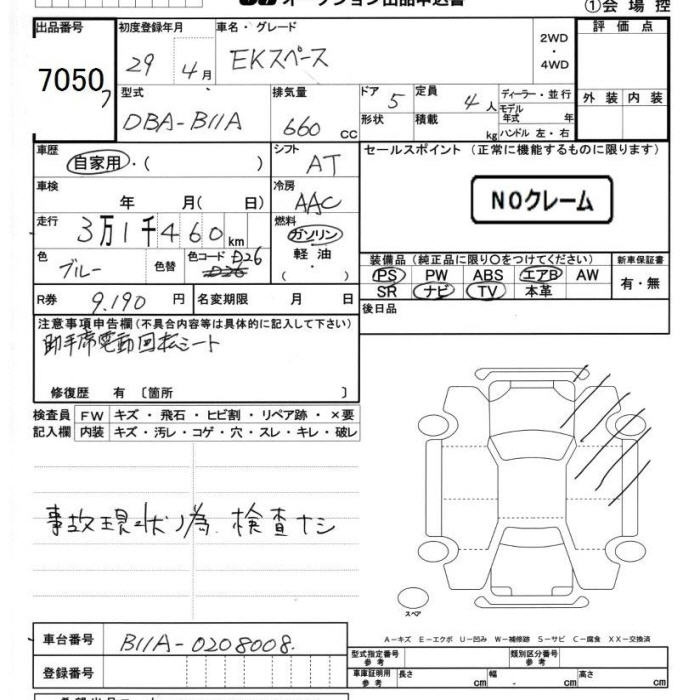 オークション出品申込書
①会場控
出品番号 初度登録年月 車名・グレード 2WD・4WD 評価点
7050 29 4月 EKスペース
型式 排気量 ドア 5 定員 4人 ディーラー・並行 外装 内装
DBA-B11A 660 cc 形状 積載 kg モデル年式 年
ハンドル 左・右
車歴 自家用・( ) シフト AT セールスポイント (正常に機能するものに限ります)
車検 年 月( 日) 冷房 AAC NOクレーム
走行 3万1千460km 燃料 ガソリン
軽油・( )
色 ブルー 色替 色コード D26
装備品(純正品に限り○をつけてください) 新車保証書
PS PW ABS エアB AW 有・無
SR ナビ TV 本革
R券 9.190円 名変期限 月 日 後日品
注意事項申告欄(不具合内容等は具体的に記入して下さい)
助手席電動回転シート
修復歴 有 〔箇所 〕
検査員 FW キズ・飛石・ヒビ割・リペア跡・×要
記入欄 内装 キズ・汚レ・コゲ・穴・スレ・キレ・破レ
事故現状ノ為 検査ナシ
スペア
A-キズ E-エクボ U-凹み W-補修跡 S-サビ C-腐食 XX-交換済
車台番号 B11A-0208008. 型式指定番号 参考 類別区分番号 参考
登録番号 車庫証明用 参考 長さ cm 幅 cm 高さ cm